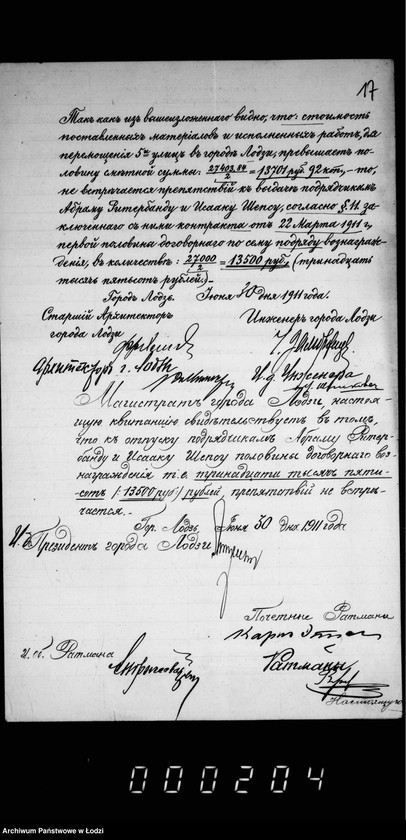 17
Такъ какъ изъ вышеизложеннаго видно, что: стоимость
поставленныхъ матеріаловъ и исполненныхъ работъ, для
перемощенія 5ти улицъ въ городѣ Лодзи, превышаетъ по-
ловину смѣтной суммы: 27403.84/2 = 13701 руб. 92 коп., - то,
не встрѣчается препятствій къ выдачѣ подрядчикамъ
Абраму Ритербанду и Исааку Шепсу, согласно §. 11. за-
ключеннаго съ ними контракта отъ 22 Марта 1911 г,
первой половины договорнаго по сему подряду вознаграж-
денія, въ количествѣ: 27000/2 = 13500 руб. (тринадцать
тысячъ пятьсотъ рублей.) -
Городъ Лодзь. Іюня 30 дня 1911 года.
Старшій Архитекторъ
города Лодзи
Инженеръ города Лодзи
Архитекторъ г. Лодзи
И. д. Инженера
Магистратъ города Лодзи настоя-
щую квитанцію свидѣтельствуетъ въ томъ,
что къ отпуску подрядчикамъ Абраму Ритер-
банду и Исааку Шепсу половины договорнаго воз-
награжденія т. е. тринадцати тысячъ пяти-
сотъ /: 13500 руб:/ рублей, препятствій не встрѣ-
чается. -
Гр. Лодзь, Іюня 30 дня 1911 года
И. об. Президентъ города Лодзи
Почетные Ратманы
и. об. Ратмана
Ратманы
000204
Archiwum Państwowe w Łodzi